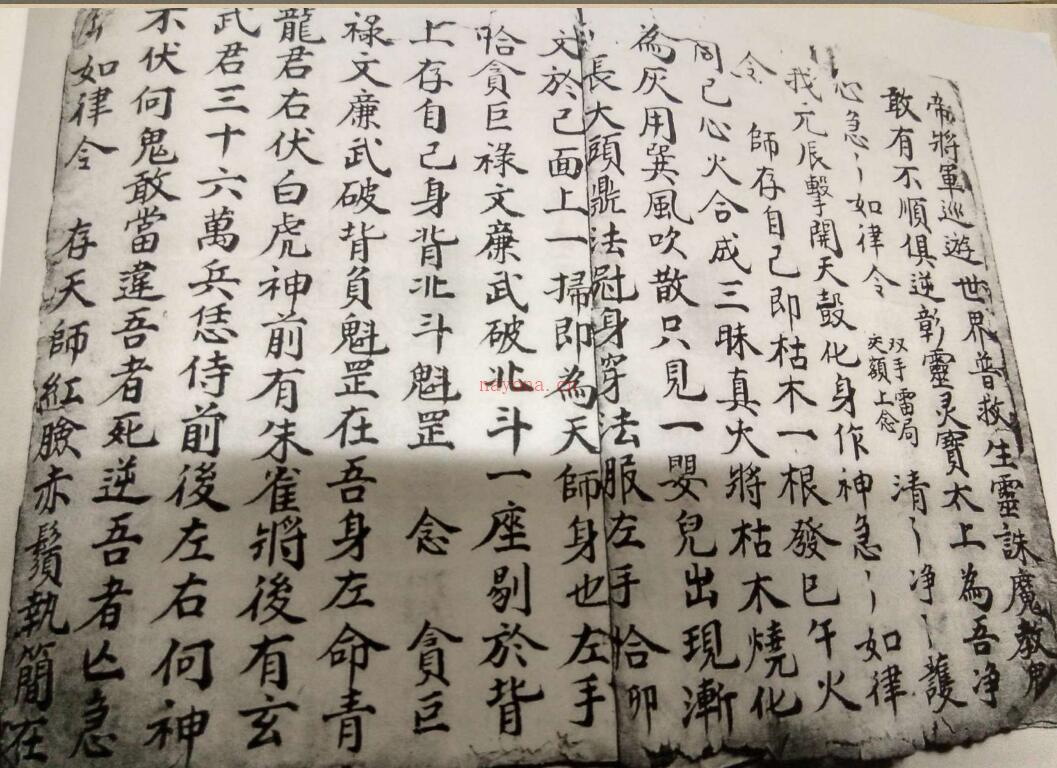 帝將軍巡遊世界普救生靈誅魔教
敢有不順俱逆彰靈灵寶太上為吾净
心急〻如律令 双手雷局 夹額上念 清〻净〻護
我元辰擊開天殼化身作神急〻如律
令 師存自己即枯木一根發巳午火
同己心火合成三昧真火將枯木燒化
為灰用巽風吹散只見一嬰兒出現漸
長大頭鼎法冠身穿法服左手恰卯
文於己面上一掃即為天師身也左手
哈貪巨祿文廉武破北斗一座剔於背
上存自己身背北斗魁罡 念 貪巨
祿文廉武破背負魁罡在吾身左命青
龍君右伏白虎神前有朱雀將後有玄
武君三十六萬兵恁侍前後左右何神
不伏何鬼敢當違吾者死逆吾者亾急
如律令 存天師紅臉赤鬚執簡在
nayona.cn